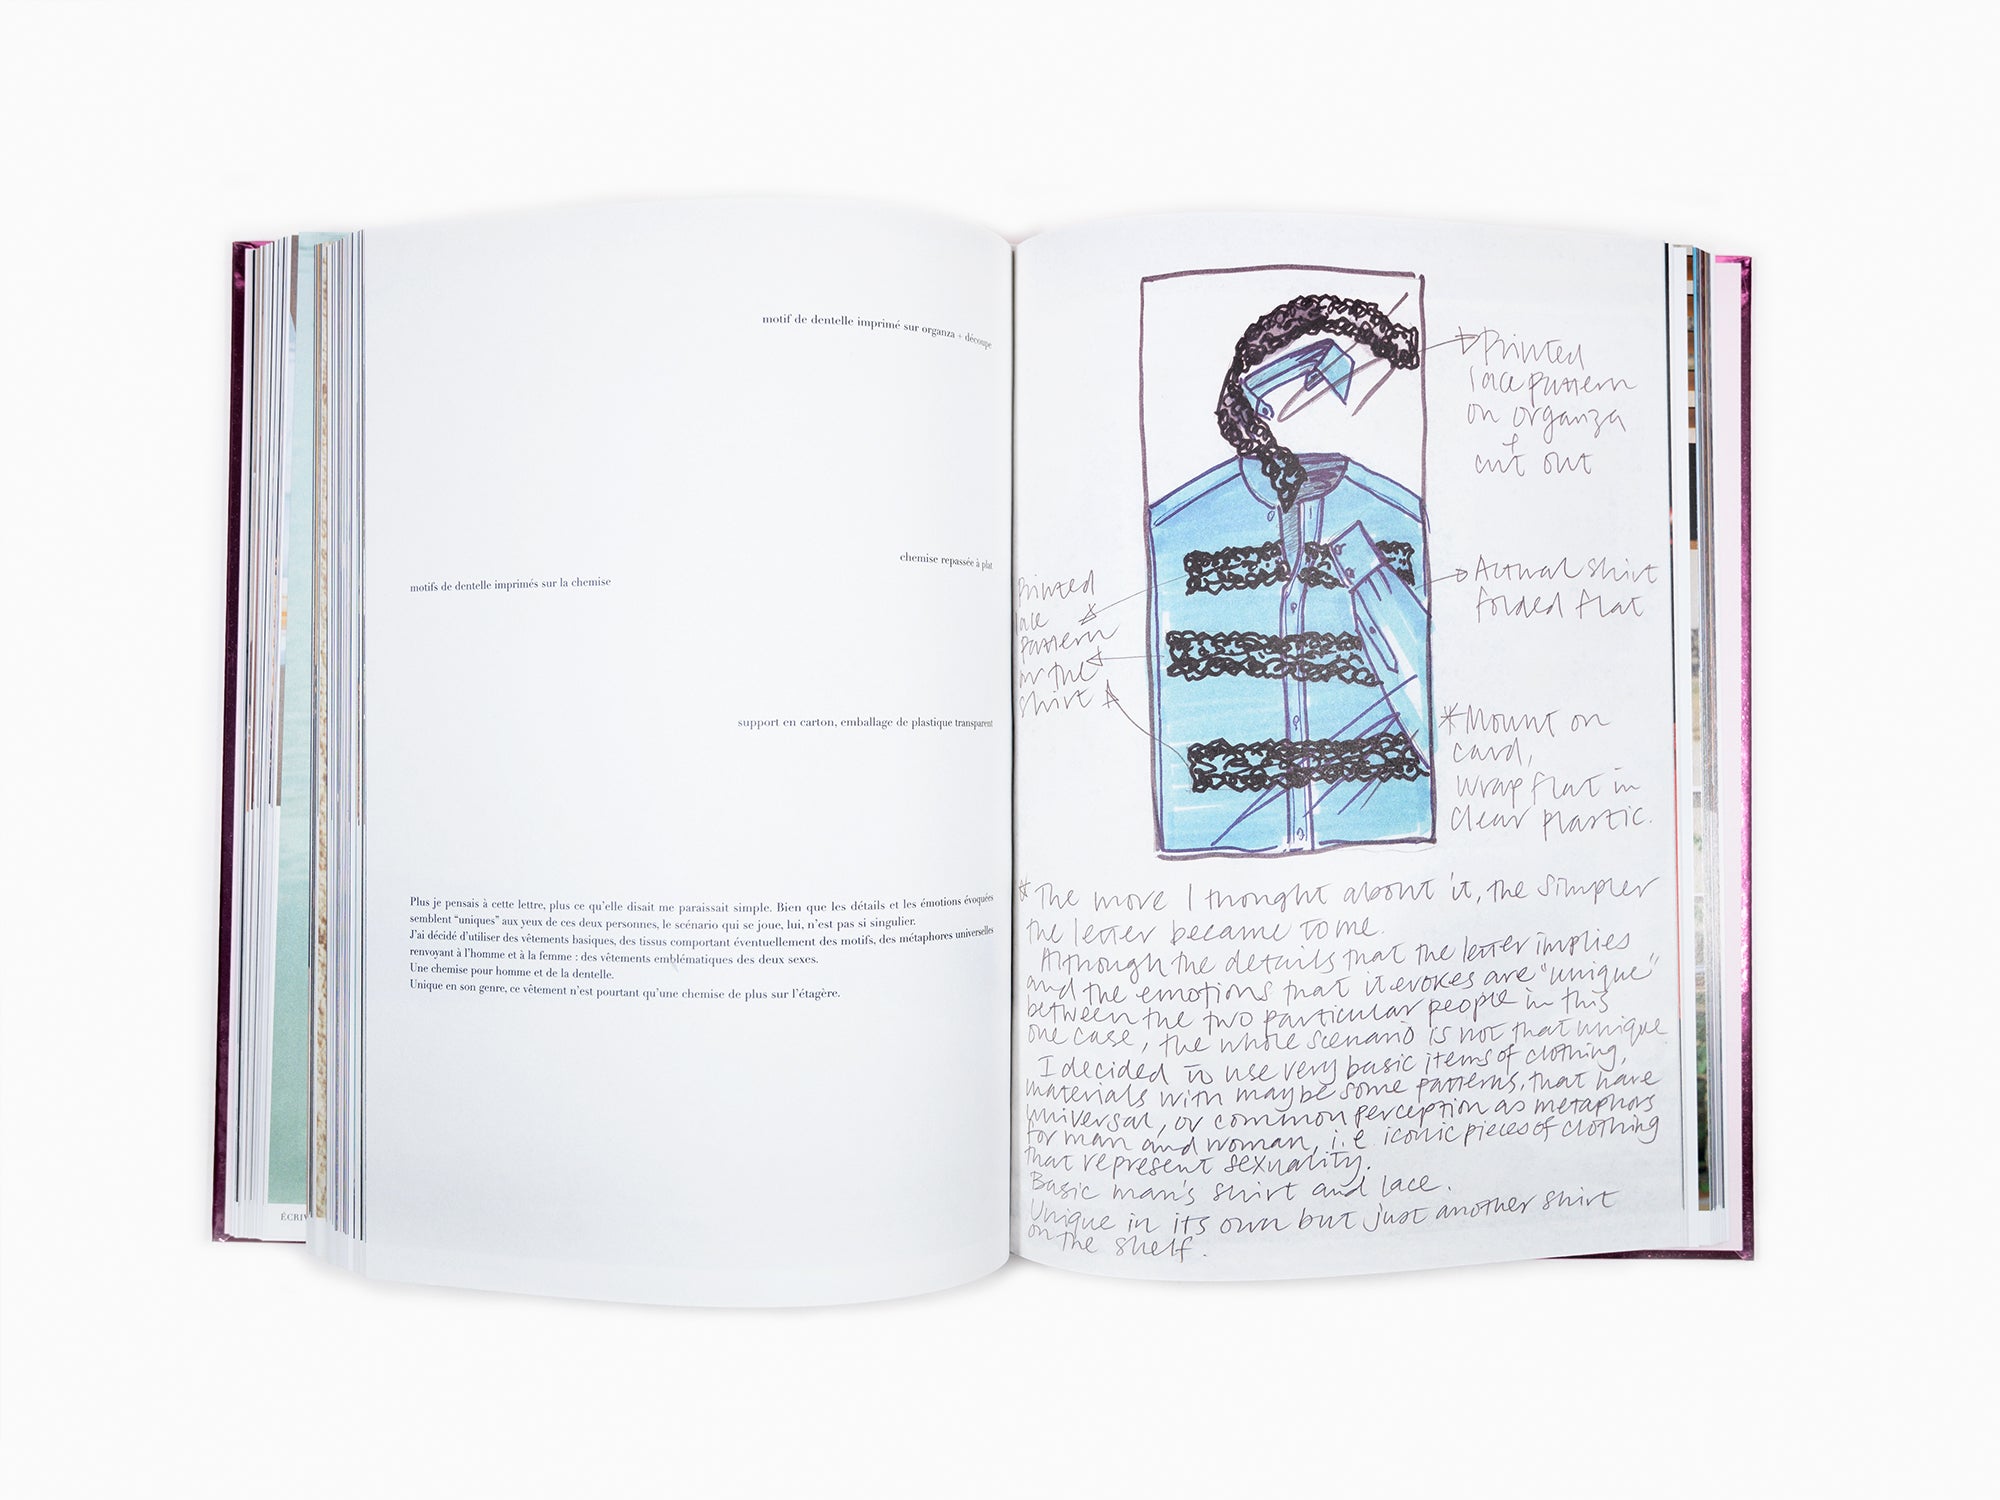 motif de dentelle imprimé sur organza + découpe
chemise repassée à plat
motifs de dentelle imprimés sur la chemise
support en carton, emballage de plastique transparent
Plus je pensais à cette lettre, plus ce qu'elle disait me paraissait simple. Bien que les détails et les émotions évoquées
semblent "uniques" aux yeux de ces deux personnes, le scénario qui se joue, lui, n'est pas si singulier.
J'ai décidé d'utiliser des vêtements basiques, des tissus comportant éventuellement des motifs, des métaphores universelles
renvoyant à l'homme et à la femme : des vêtements emblématiques des deux sexes.
Une chemise pour homme et de la dentelle.
Unique en son genre, ce vêtement n'est pourtant qu'une chemise de plus sur l'étagère.
ÉCRIV
Printed
lace pattern
on organza
+
cut out
Actual shirt
folded flat
Printed
lace
pattern
on the
shirt
*Mount on
card,
Wrap flat in
clear plastic.
* The more I thought about it, the simpler
the letter became to me.
Although the details that the letter implies
and the emotions that it evokes are "unique"
between the two particular people in this
one case, the whole scenario is not that unique
I decided to use very basic items of clothing,
materials with maybe some patterns, that have
universal, or common perception as metaphors
for man and woman, i.e. iconic pieces of clothing
that represent sexuality.
Basic man's shirt and lace.
Unique in its own but just another shirt
on the shelf.